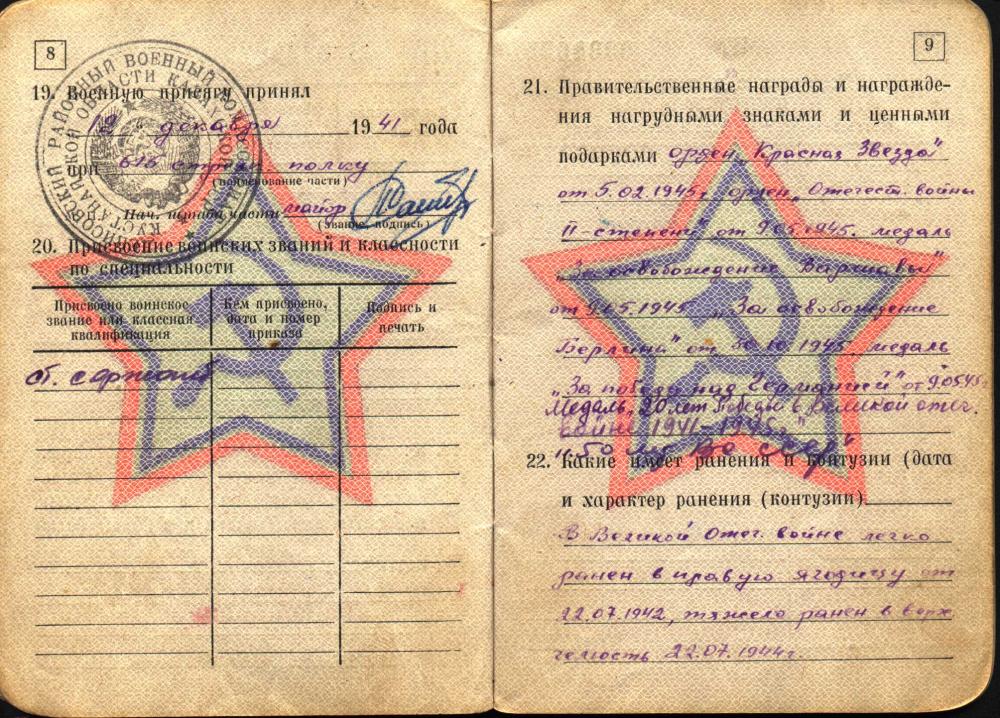 8
19. Военную присягу принял
19 декабря 1941 года
при 616 стрелк полку
(наименование части)
Нач. штаба части майор
(звание, подпись)
20. Присвоение воинских званий и классности
по специальности
Присвоено воинское звание или классная квалификация
Кем присвоено, дата и номер приказа
Подпись и печать
ст. сержант
9
21. Правительственные награды и награжде-
ния нагрудными знаками и ценными
подарками орден „Красная Звезда"
от 5.02.1945г орден „Отечест. войны
II-степени" от 9.05.1945. медаль
„За освобождение Варшавы"
от 9.05.1945 „За освобождение
Берлина" от 30.10.1945 медаль
„За победу над Германией" от 9.05.45г
Медаль „20 лет Победы в Великой отеч.
войне 1941-1945г."
22. Какие имеет ранения и контузии (дата
и характер ранения (контузии)
В Великой Отеч. войне легко
ранен в правую ягодицу от
22.07.1942, тяжело ранен в верх
челюсть 22.07.1944г.